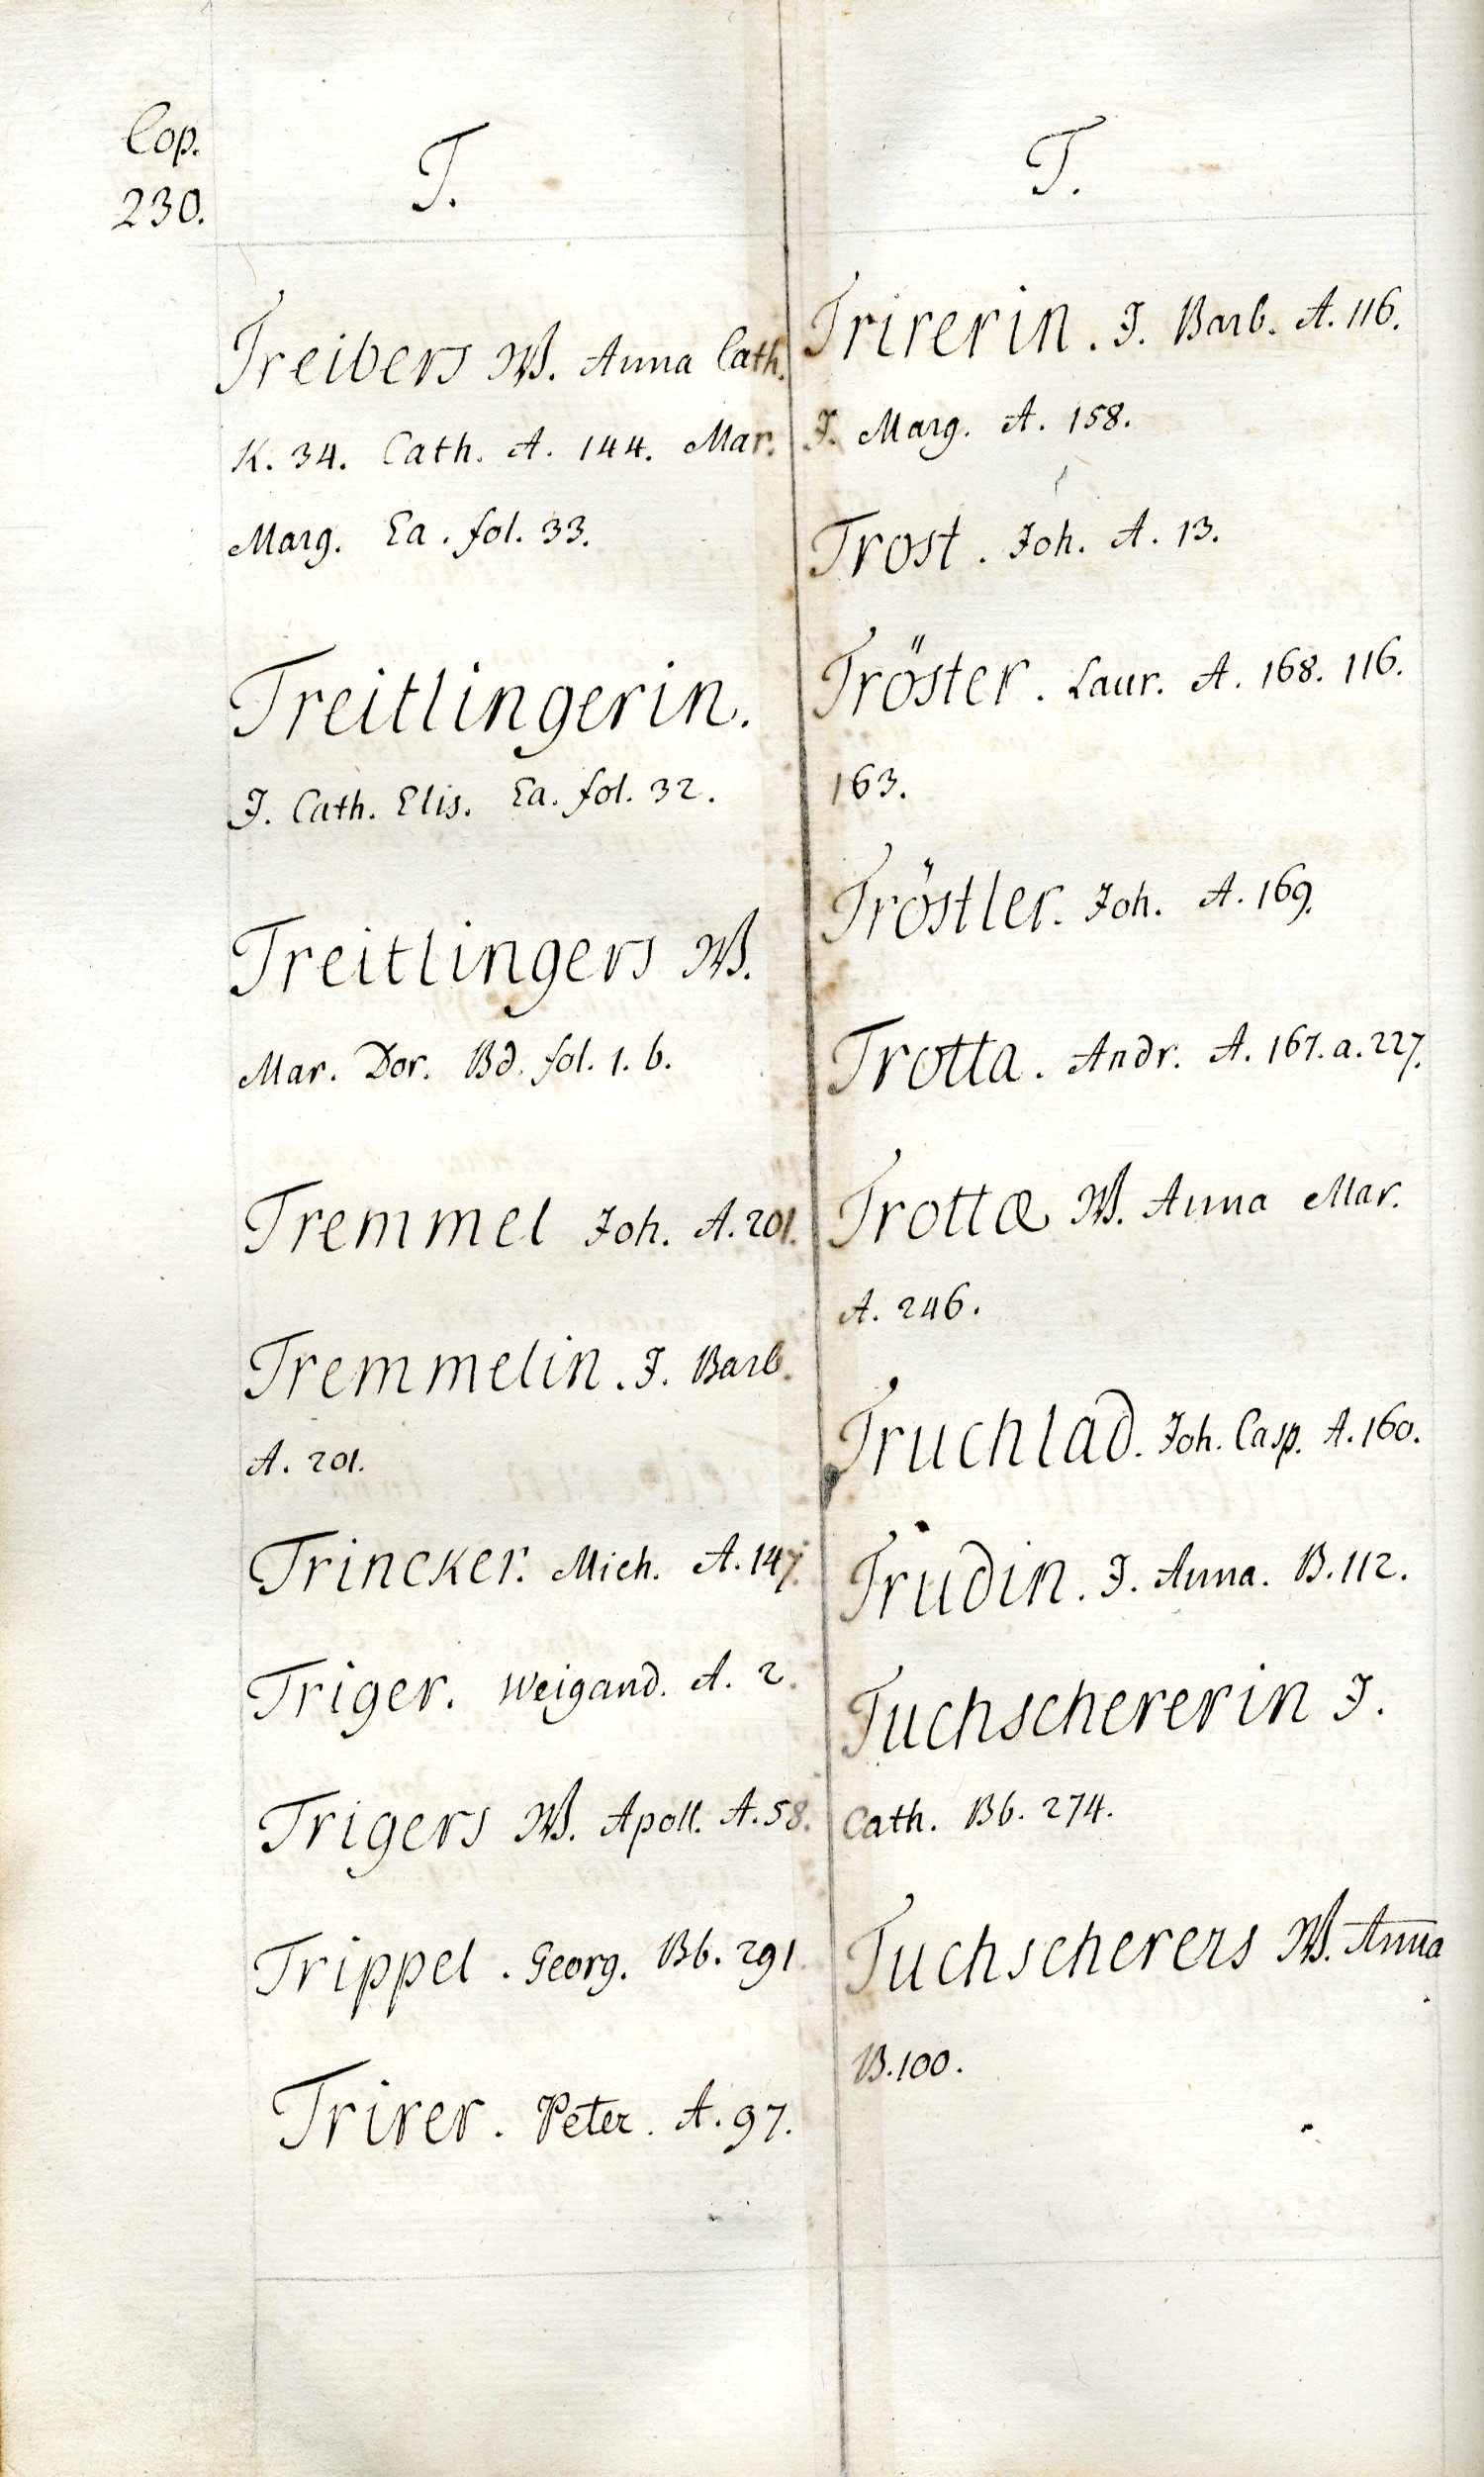 Cop.
230.
T.
Treibers W. Anna Cath.
K. 34. Cath. A. 144. Mar.
Marg. Ea. fol. 33.
Treitlingerin.
J. Cath. Elis. Ea. fol. 32.
Treitlingers W.
Mar. Dor. Bd. fol. 1. b.
Tremmel Joh. A. 201.
Tremmelin. J. Barb.
A. 201.
Trincker. Mich. A. 147.
Triger. Weigand. A. 2.
Trigers W. Apoll. A. 58.
Trippel. Georg. Bb. 291.
Trirer. Peter. A. 97.
T.
Trirerin. J. Barb. A. 116.
J. Marg. A. 158.
Trost. Joh. A. 13.
Tröster. Laur. A. 168. 116.
163.
Tröstler. Joh. A. 169.
Trotta. Andr. A. 167. a. 227.
Trottæ W. Anna Mar.
A. 246.
Truchlad. Joh. Casp. A. 160.
Trudin. J. Anna. B. 112.
Tuchschererin J.
Cath. Bb. 274.
Tuchscherers W. Anna
B. 100.